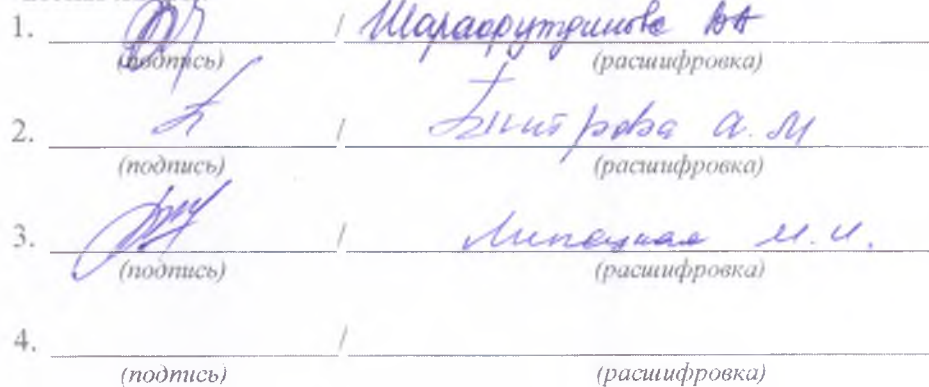 1. / Шарафутдинова
(подпись) (расшифровка)
2. / а. М
(подпись) (расшифровка)
3. / Липецкая М. И.
(подпись) (расшифровка)
4. /
(подпись) (расшифровка)